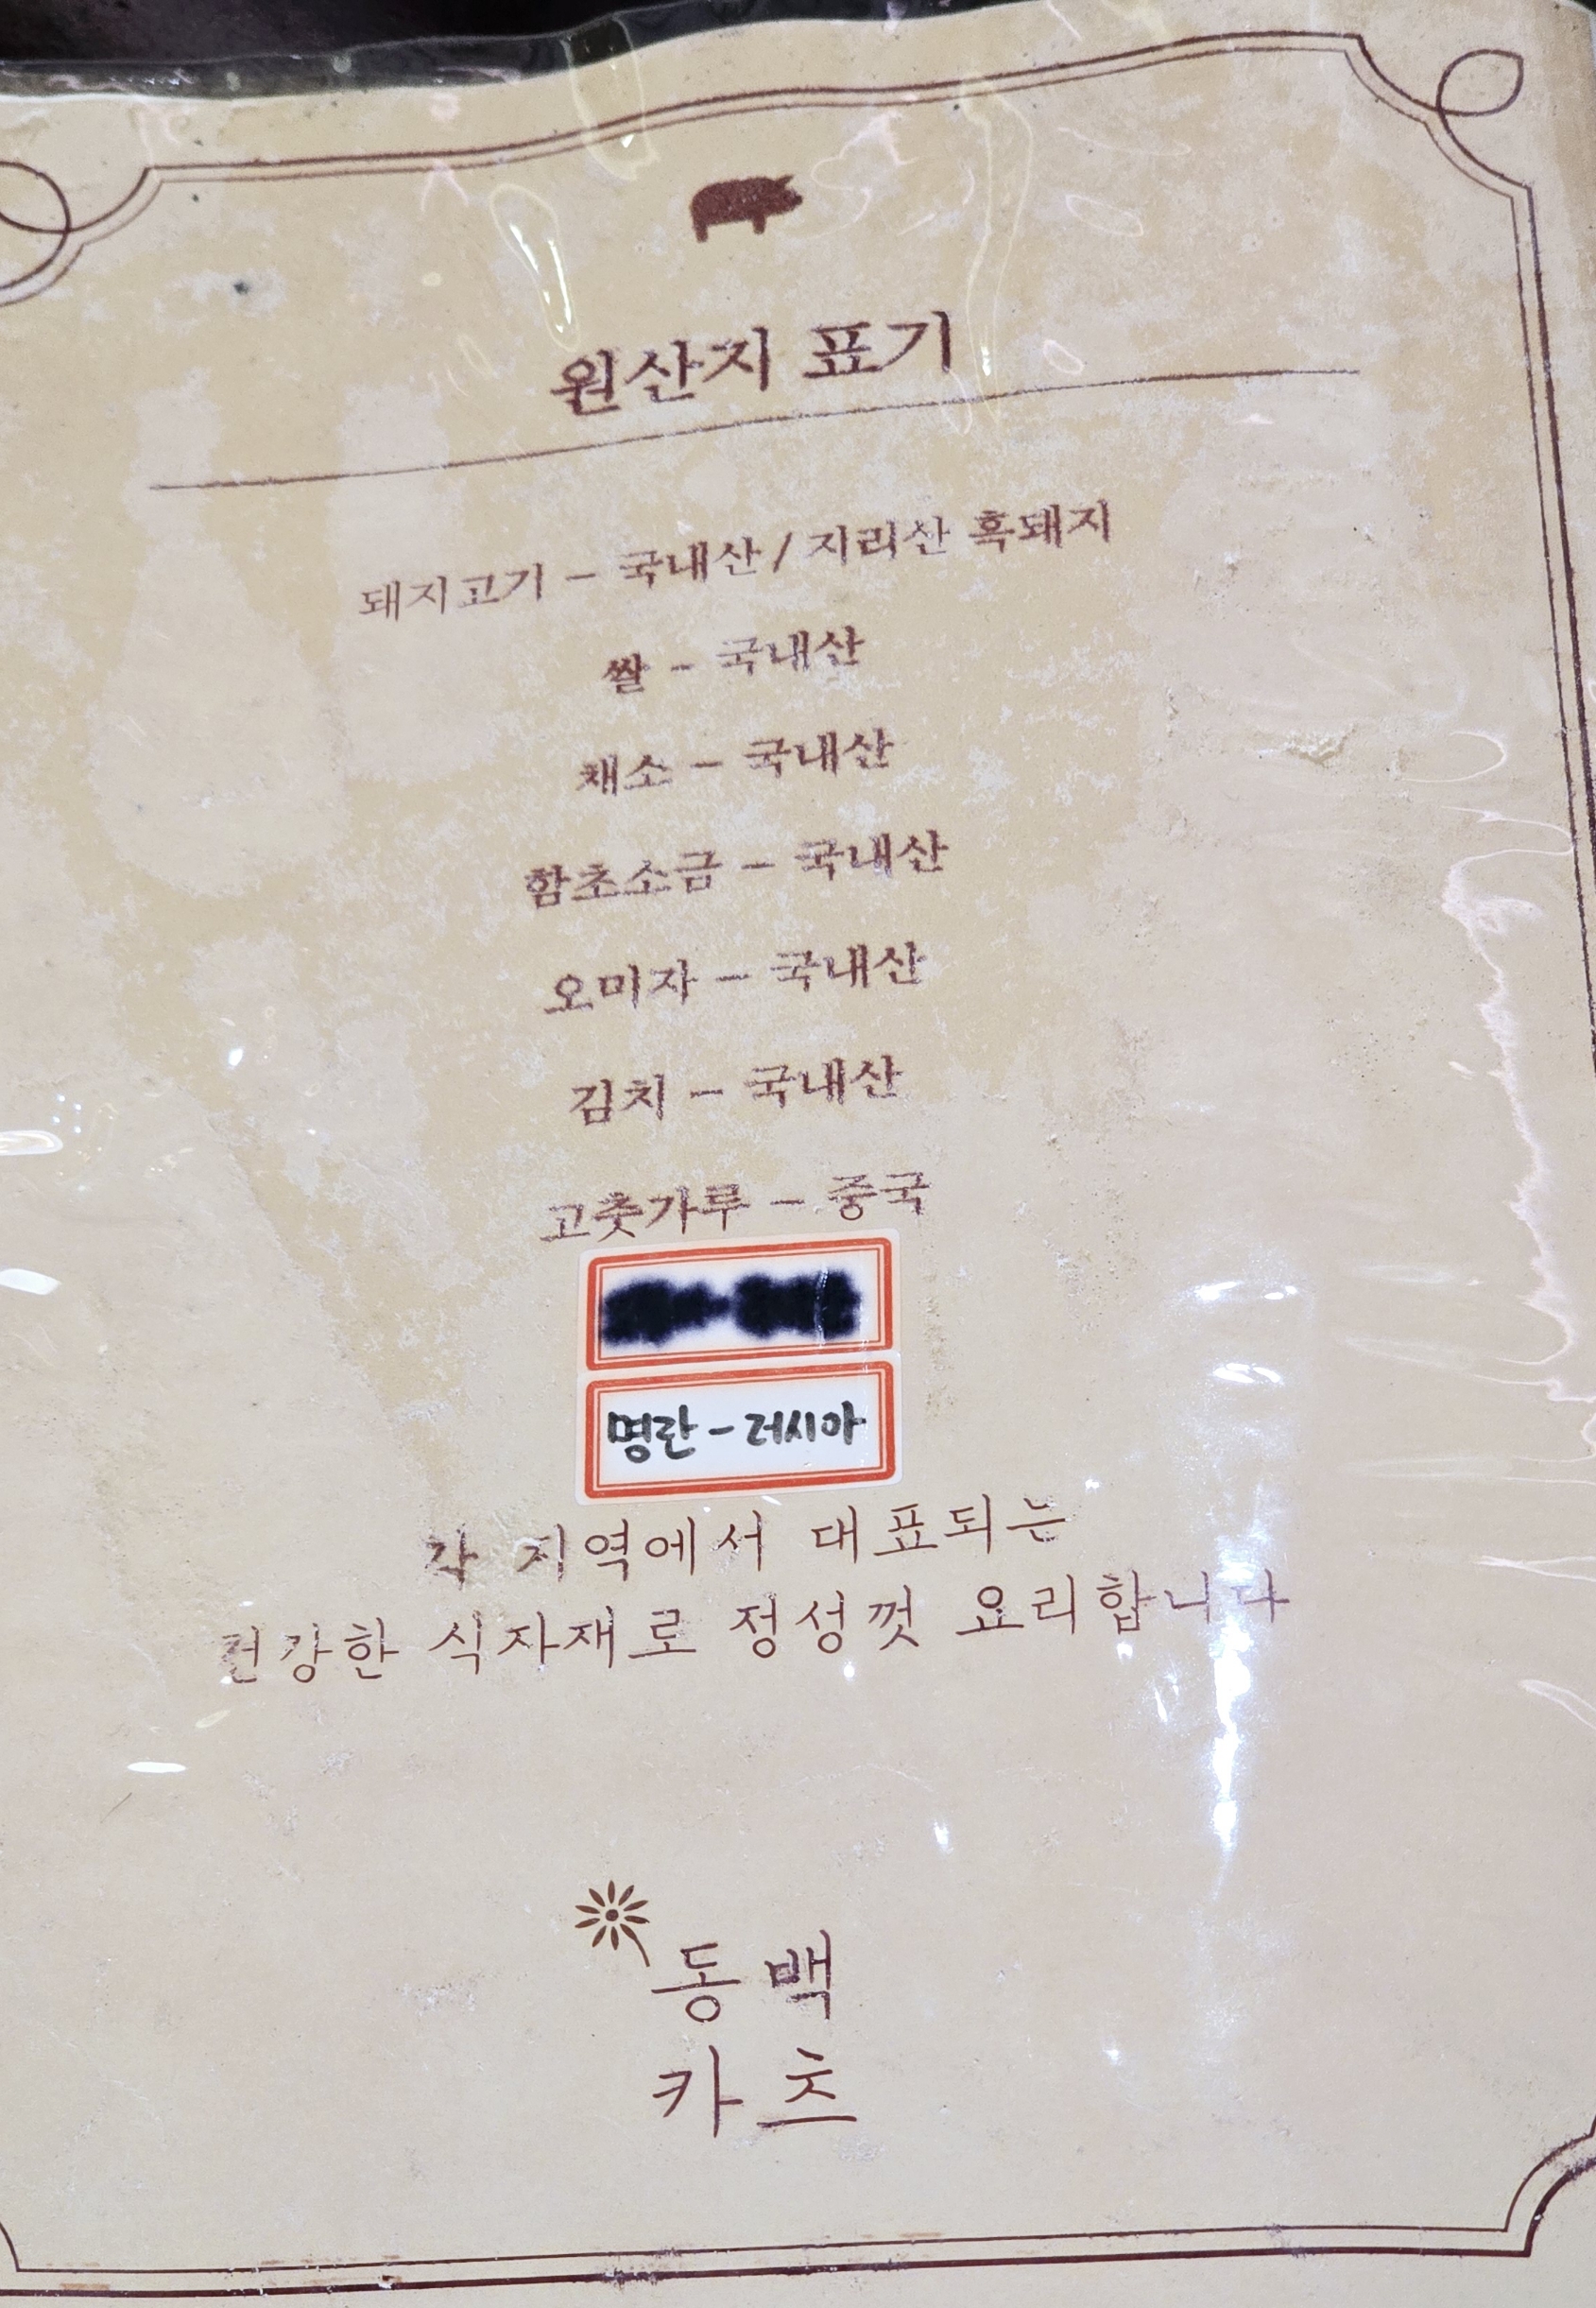 원산지 표기
돼지고기 - 국내산 / 지리산 흑돼지
쌀 - 국내산
채소 - 국내산
함초소금 - 국내산
오미자 - 국내산
김치 - 국내산
고춧가루 - 중국
명란 - 러시아
각 지역에서 대표되는
건강한 식자재로 정성껏 요리합니다
동백
카츠